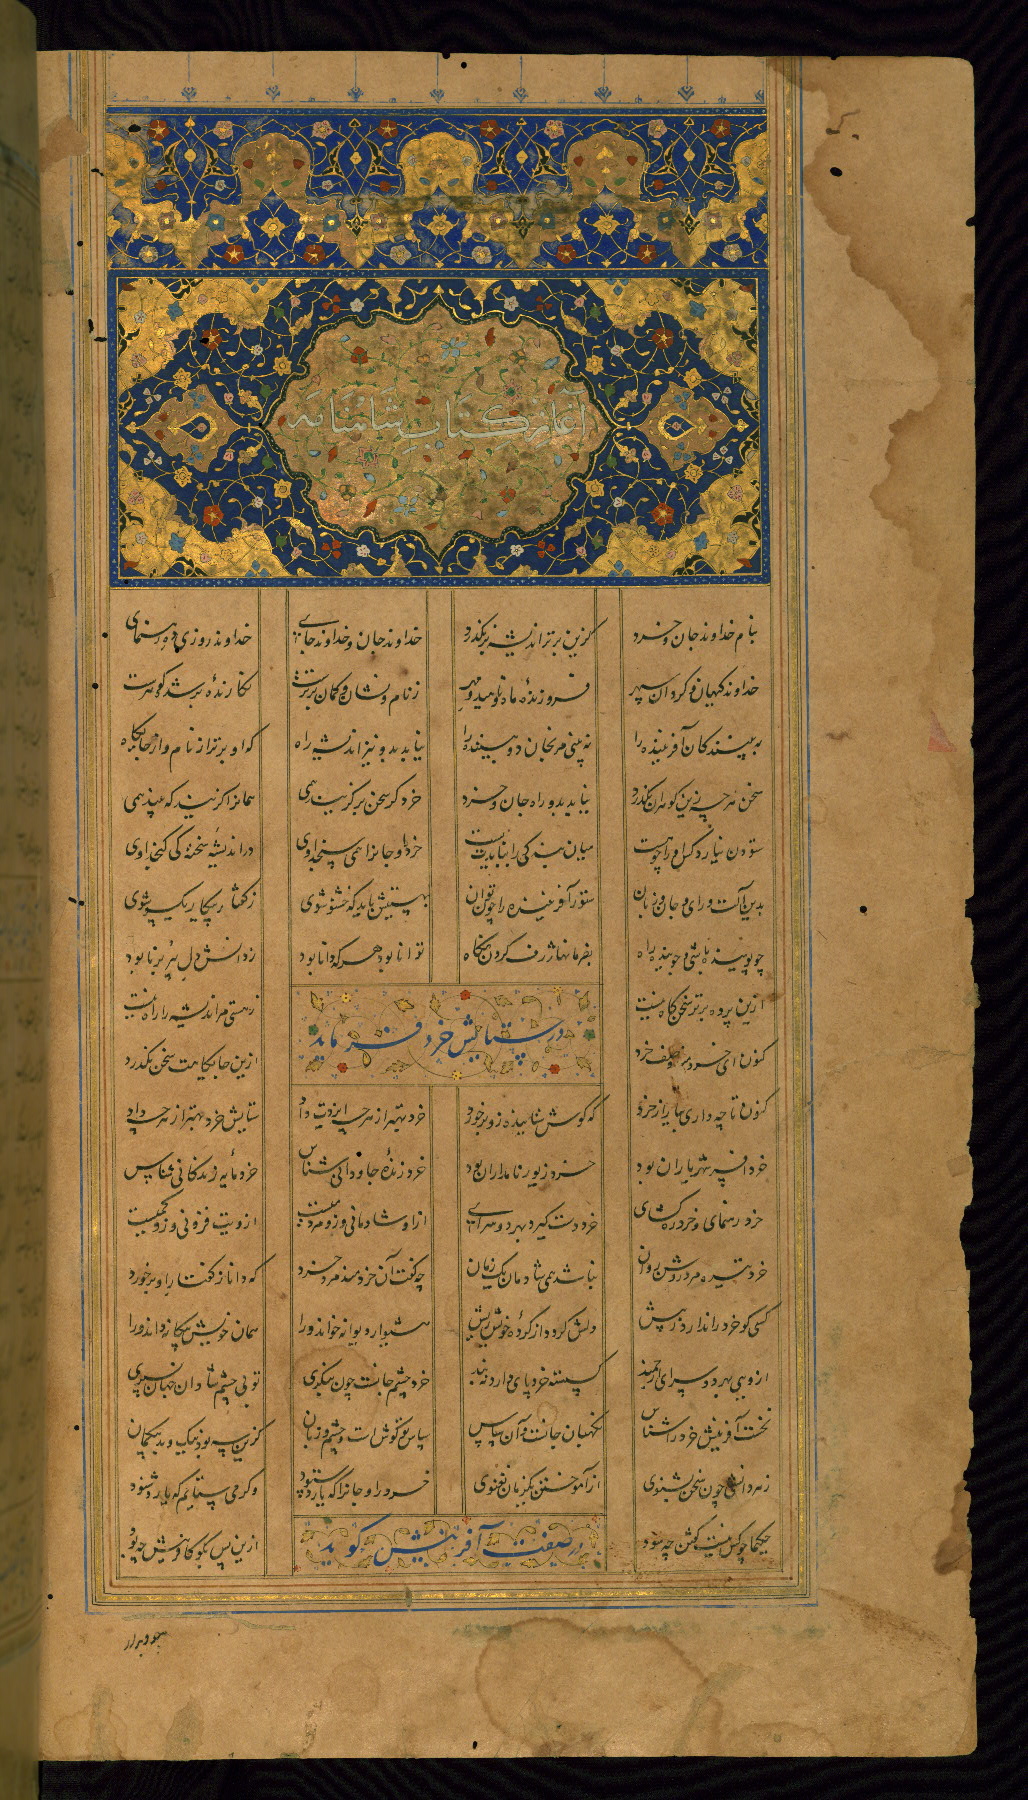 آغاز کتاب شاهنامه
بنام خداوند جان و خرد کزین برتر اندیشه برنگذرد خداوند جان و خداوند جای خداوند روزی ده رهنمای
خداوند کیهان و گردان سپهر فروزنده ماه و ناهید و مهر ز نام و نشان و گمان برترست نگارندهٔ برشده گوهرست
به بینندگان آفریننده را نه بینی مرنجان دو بیننده را نیابد بدو نیز اندیشه راه که او برتر از نام و از جایگاه
سخن هر چه زین گوهران بگذرد نیابد بدو راه جان و خرد خرد گر سخن برگزیند همی همانرا گزیند که بیند همی
ستودن نیارد کس او را چو هست میان بندگی را ببایدت بست خرد را و جانرا همی سنجد اوی در اندیشهٔ سخته کی گنجد اوی
بدین آلت و رای و جان و زبان ستود آفریننده را چون توان بهستیش باید که خستو شوی ز گفتار بیکار یکسو شوی
چو پوینده باشی و جوینده راه بفرمانها ژرف کردن نگاه توانا بود هر که دانا بود ز دانش دل پیر برنا بود
ازین پرده برتر سخن گاه نیست ز هستی مر اندیشه را راه نیست
در ستایش خرد فرماید
کنون ای خردمند وصف خرد ازین جایگاهت سخن بگذرد
کنون تا چه داری بیار از خرد که گوش نیوشنده زو برخورد خرد بهتر از هر چه ایزدت داد ستایش خرد بهتر از هر چه داد
خرد افسر شهریاران بود خرد زیور نامداران بود خرد زندهٔ جاودانی شناس خرد مایه زندگانی شناس
خرد رهنمای و خرد دلگشای خرد دست گیرد بهر دو سرای ازو شادمانی و زو مردمیست ازویت فزونی و زو کمیست
خرد تیره و مرد روشن روان نباشد همی شادمان یک زمان چه گفت آن خردمند مرد خرد که دانا ز گفتار او برخورد
کسی کو خرد را ندارد ز پیش دلش گردد از کردهٔ خویش ریش هشیوار دیوانه خواند ورا همان خویش بیگانه داند ورا
ازویی بهر دو سرای ارجمند گسسته خرد پای دارد به بند خرد چشم جانست چون بنگری تو بی چشم شادان جهان نسپری
نخست آفرینش خرد را شناس نگهبان جانست و آن سپاس سپاس تو گوش است و چشم و زبان کزین سه بود نیک و بد بیگمان
ز هر دانشی چون سخن بشنوی از آموختن یکزمان نغنوی خرد را و جانرا که یارد ستود وگر من ستایم که یارد شنود
حکیما چو کس نیست گفتن چه سود ازین پس بگو کافرینش چه بود
در صفت آفرینش گوید